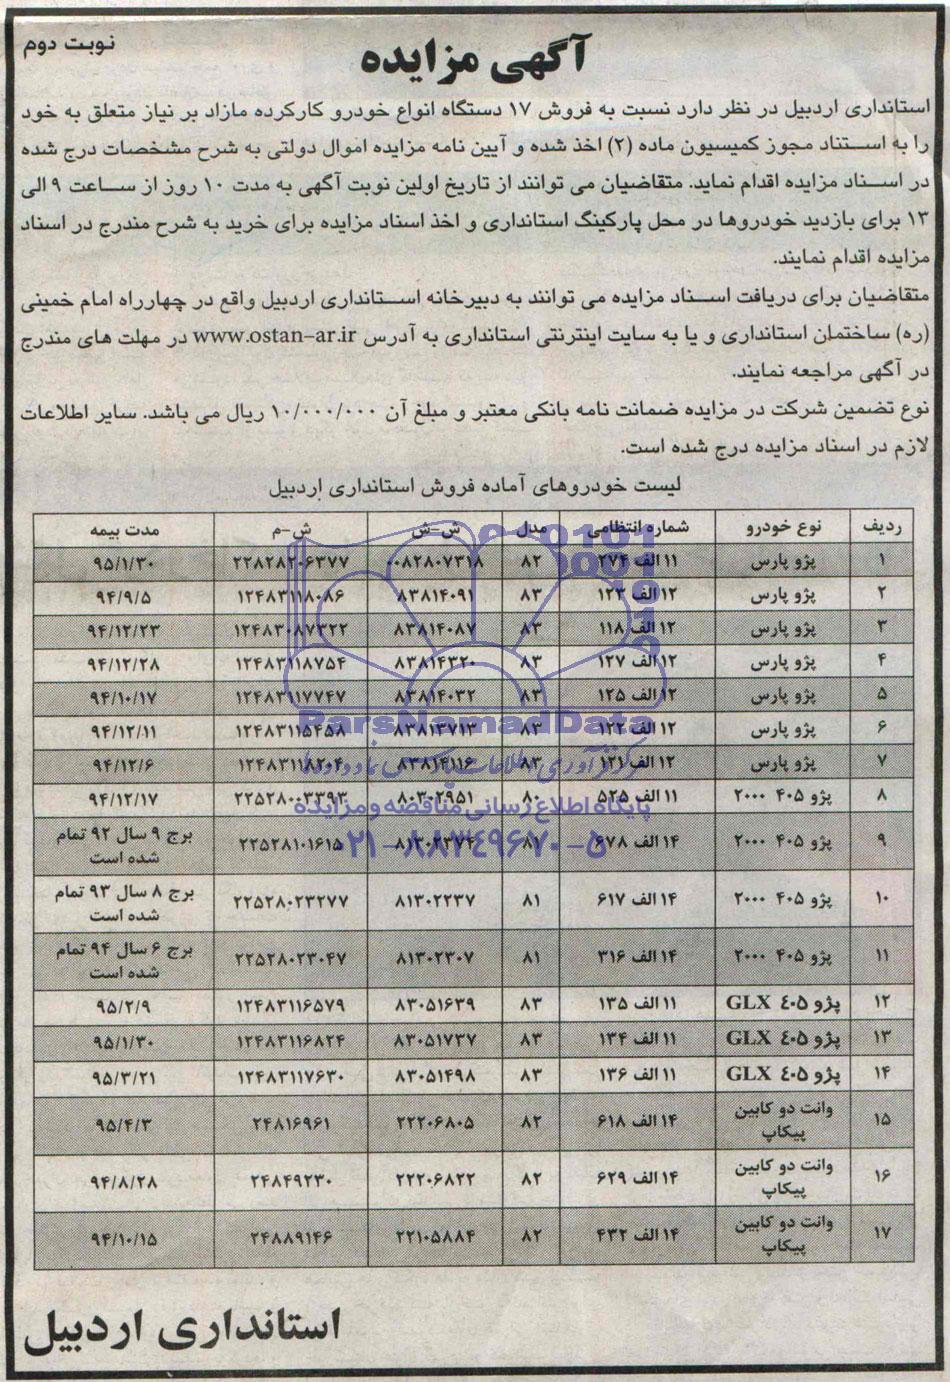 نوبت دوم
آگهی مزایده
استانداری اردبیل در نظر دارد نسبت به فروش ۱۷ دستگاه انواع خودرو کارکرده مازاد بر نیاز متعلق به خود
را به استناد مجوز کمیسیون ماده (۲) اخذ شده و آیین نامه مزایده اموال دولتی به شرح مشخصات درج شده
در اسناد مزایده اقدام نماید. متقاضیان می توانند از تاریخ اولین نوبت آگهی به مدت ۱۰ روز از ساعت ۹ الی
۱۳ برای بازدید خودروها در محل پارکینگ استانداری و اخذ اسناد مزایده برای خرید به شرح مندرج در اسناد
مزایده اقدام نمایند.
متقاضیان برای دریافت اسناد مزایده می توانند به دبیرخانه استانداری اردبیل واقع در چهارراه امام خمینی
(ره) ساختمان استانداری و یا به سایت اینترنتی استانداری به آدرس www.ostan-ar.ir در مهلت های مندرج
در آگهی مراجعه نمایند.
نوع تضمین شرکت در مزایده ضمانت نامه بانکی معتبر و مبلغ آن ۱۰/۰۰۰/۰۰۰ ریال می باشد. سایر اطلاعات
لازم در اسناد مزایده درج شده است.
لیست خودروهای آماده فروش استانداری اردبیل
ردیف نوع خودرو شماره انتظامی مدل ش-ش ش-م مدت بیمه
۱ پژو پارس ۱۱ الف ۲۷۴ ۸۲ ۰۰۸۲۸۰۷۳۱۸ ۲۲۸۲۸۲۰۶۳۷۷ ۹۵/۱/۳۰
۲ پژو پارس ۱۲ الف ۱۲۳ ۸۳ ۸۳۸۱۴۰۹۱ ۱۲۴۸۳۱۱۸۰۸۶ ۹۴/۹/۵
۳ پژو پارس ۱۲ الف ۱۱۸ ۸۳ ۸۳۸۱۴۰۸۷ ۱۲۴۸۳۰۸۷۳۲۲ ۹۴/۱۲/۲۳
۴ پژو پارس ۱۲ الف ۱۲۷ ۸۳ ۸۳۸۱۴۳۲۰ ۱۲۴۸۳۱۱۸۷۵۴ ۹۴/۱۲/۲۸
۵ پژو پارس ۱۲ الف ۱۲۵ ۸۳ ۸۳۸۱۴۰۳۲ ۱۲۴۸۳۱۱۷۷۴۷ ۹۴/۱۰/۱۷
۶ پژو پارس ۱۲ الف ۱۲۲ ۸۳ ۸۳۸۱۳۷۱۳ ۱۲۴۸۳۱۱۵۴۵۸ ۹۴/۱۲/۱۱
۷ پژو پارس ۱۲ الف ۱۲۱ ۸۳ ۸۳۸۱۴۱۱۶ ۱۲۴۸۳۱۱۸۲۰۴ ۹۴/۱۲/۶
۸ پژو ۴۰۵ ۲۰۰۰ ۱۱ الف ۵۲۵ ۸۰ ۸۰۳۰۲۹۵۱ ۲۲۵۲۸۰۰۳۳۹۳ ۹۴/۱۲/۱۷
۹ پژو ۴۰۵ ۲۰۰۰ ۱۴ الف ۶۷۸ ۸۱ ۸۱۳۰۲۳۷۴ ۲۲۵۲۸۱۰۱۶۱۵ برج ۹ سال ۹۲ تمام
شده است
۱۰ پژو ۴۰۵ ۲۰۰۰ ۱۴ الف ۶۱۷ ۸۱ ۸۱۳۰۲۲۳۷ ۲۲۵۲۸۰۲۳۲۷۷ برج ۸ سال ۹۳ تمام
شده است
۱۱ پژو ۴۰۵ ۲۰۰۰ ۱۴ الف ۳۱۶ ۸۱ ۸۱۳۰۲۳۰۷ ۲۲۵۲۸۰۲۳۰۴۷ برج ۶ سال ۹۴ تمام
شده است
۱۲ پژو ۴۰۵ GLX ۱۱ الف ۱۳۵ ۸۳ ۸۳۰۵۱۶۳۹ ۱۲۴۸۳۱۱۶۵۷۹ ۹۵/۲/۹
۱۳ پژو ۴۰۵ GLX ۱۱ الف ۱۳۴ ۸۳ ۸۳۰۵۱۷۳۷ ۱۲۴۸۳۱۱۶۸۲۴ ۹۵/۱/۳۰
۱۴ پژو ۴۰۵ GLX ۱۱ الف ۱۳۶ ۸۳ ۸۳۰۵۱۴۹۸ ۱۲۴۸۳۱۱۷۶۳۰ ۹۵/۳/۲۱
۱۵ وانت دو کابین ۱۴ الف ۶۱۸ ۸۲ ۲۲۲۰۶۸۰۵ ۲۴۸۱۶۹۶۱ ۹۵/۴/۳
پیکاپ
۱۶ وانت دو کابین ۱۴ الف ۶۲۹ ۸۲ ۲۲۲۰۶۸۲۲ ۲۴۸۴۹۲۳۰ ۹۴/۸/۲۸
پیکاپ
۱۷ وانت دو کابین ۱۴ الف ۴۳۲ ۸۲ ۲۲۱۰۵۸۸۴ ۲۴۸۸۹۱۴۶ ۹۴/۱۰/۱۵
پیکاپ
ParsNamadData
پایگاه اطلاع رسانی مناقصه و مزایده
۰۲۱-۸۸۳۴۹۶۷۰-۵
استانداری اردبیل